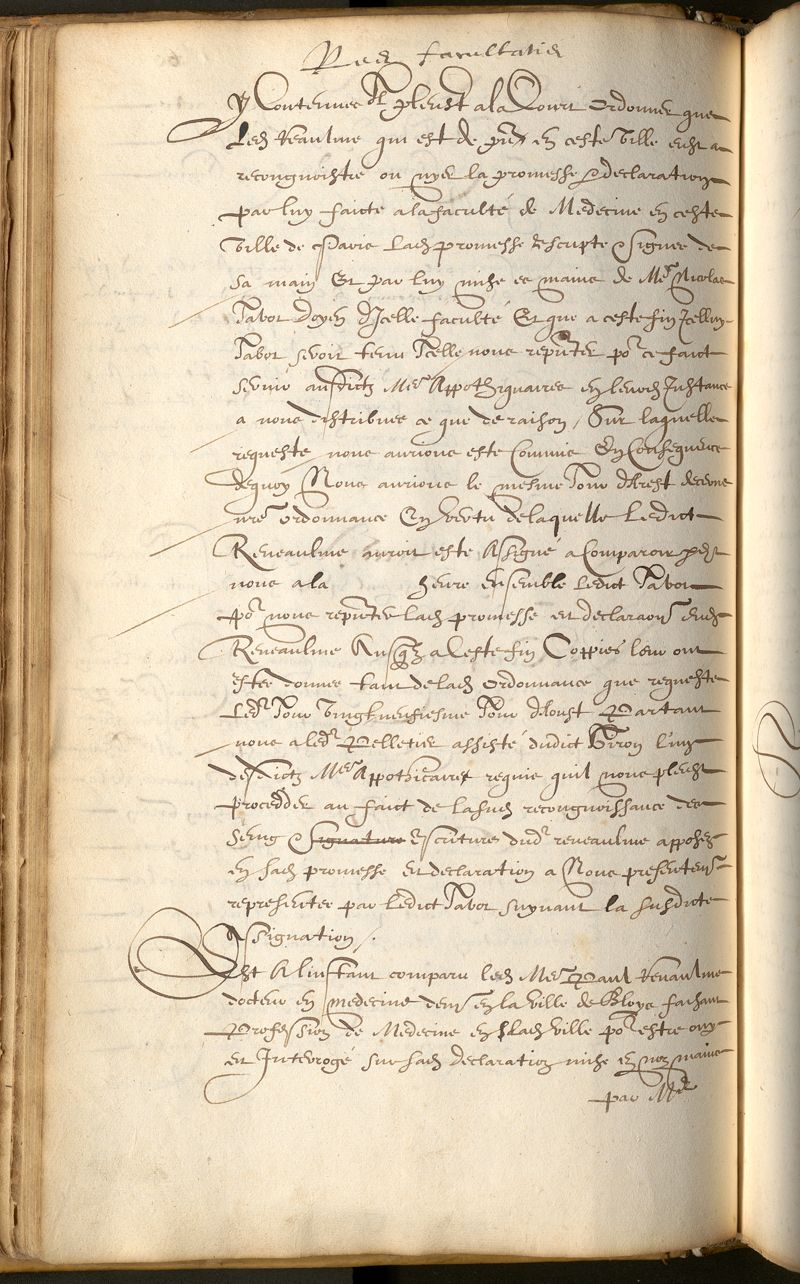 Red facultatis
Y Contenues Il pleust a la Court ordonner que
Led Reaulme qui est de pnt en ceste Ville eust a
recongnoistre ou nyer la promesse & declaration
par luy faicte a la faculté de Medecine en ceste
Ville de Paris Lad promesse escripte & signee de
sa main Et par luy mise es mains de Me Nicolas
Jabot doyen d'Icelle faculté Et que a ceste fin Icelluy
Jabot seroit tenu Icelle nous repnter por ce faict
servir ausdictz Mes Appothiquaires en leurd Instance
a nous distribuee ce que de raison / Sur laquelle
requeste nous aurions esté Commis En Consequence
dequoy Nous aurions le mesme Jour d'Arest decerné
nre ordonnance En vertu de laquelle Ledict
Reneaulme auroit esté Assigné a Comparoir
nous a la heure ensemble Ledict Jabot
por nous repnter lad promesse et declaraon dud
Reneaulme Ausqlz a Ceste fin Coppies leur ont
estee donnee tant de lad ordonnance que requeste
Led Jour Vingtneufiesme Jour d'Aoust Partant
nous a led Pelletier assisté dudict Hiron l'un
desdictz Mes Appothicaires requis quil nous pleust
proceder au faict de lasusd recongnoissance des
seing & signature escriture dud reneaulme apposez
en lad promesse et declaration a Nous presentem
representee par Ledict Jabot suyvant la susdicte
Assignation /.
Est A linstant comparu led Me Paul Renaulme
docteur en medecine demt en la ville de Bloys faisant
Profession de Medecine en lad ville por estre ouy
et Interrogé sur lad declaration mise en noz mains
par Me